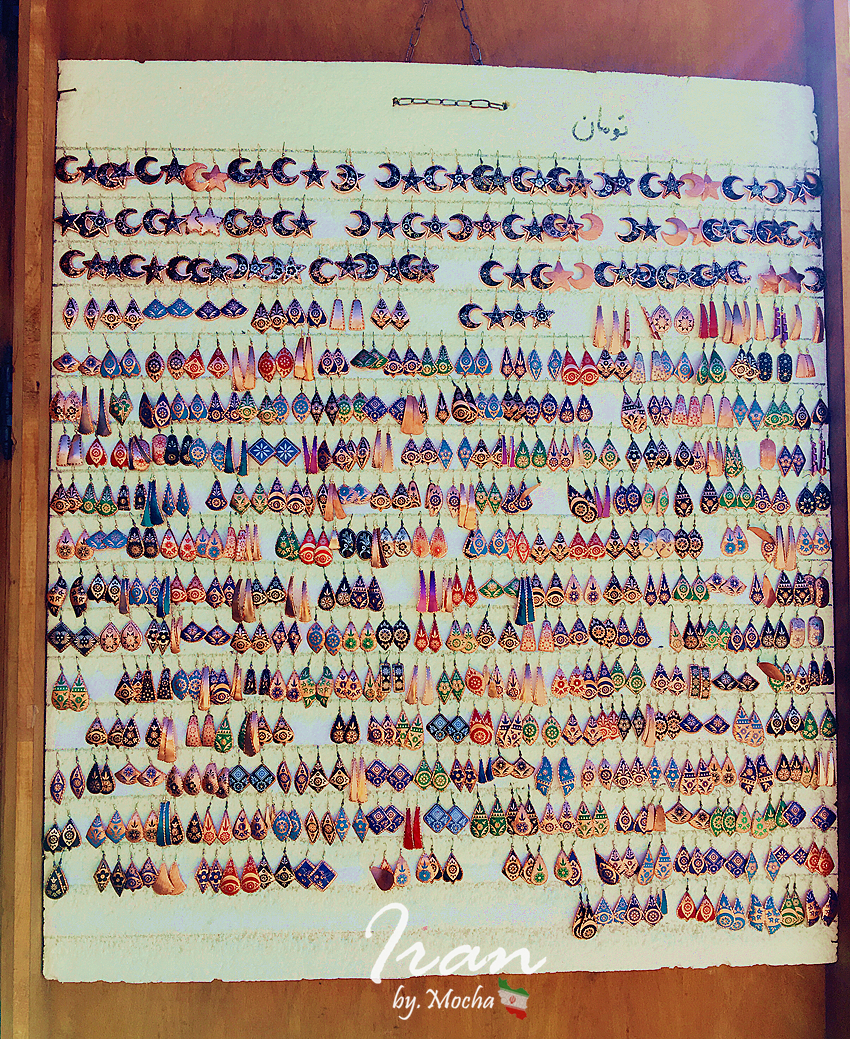 تومان
Iran
by. Mocha